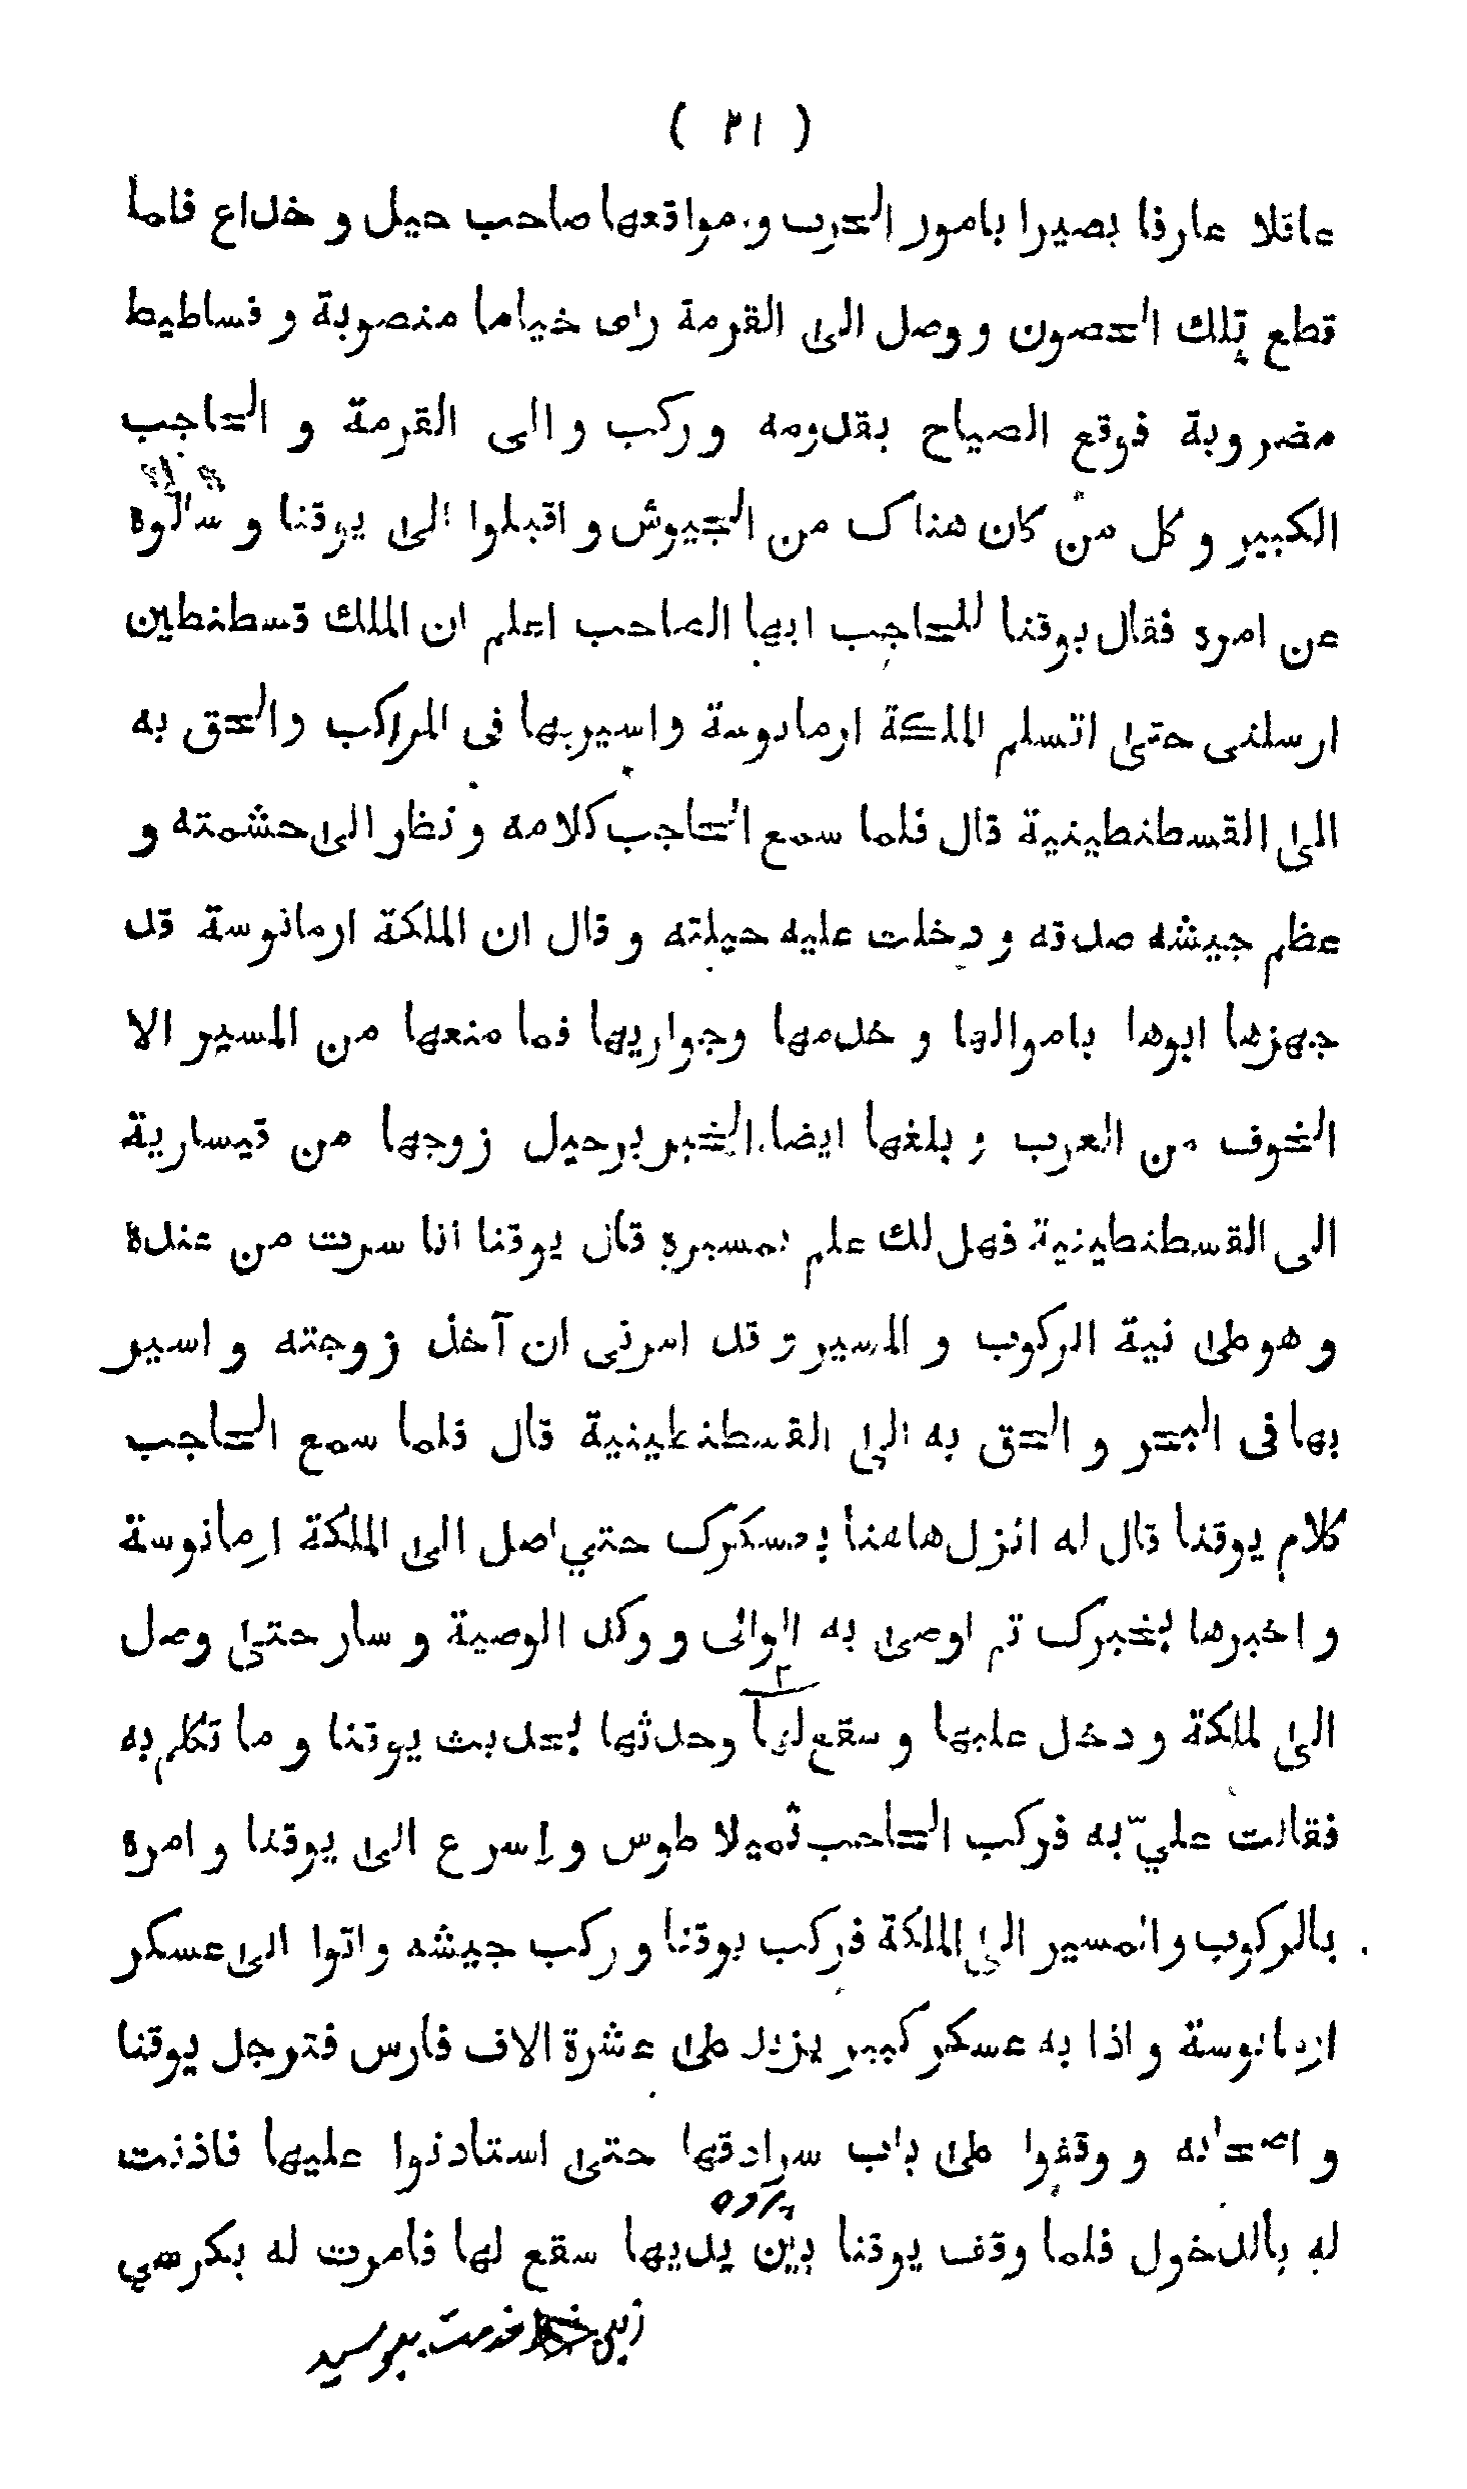 ( ٢١ )
عاقلا عارفا بصيرا بامور الحرب و مواقعها صاحب حيل و خداع فلما
قطع تلك الحصون و وصل الى القرمة راى خياما منصوبة و فساطيط
مضروبة فوقع الصياح بقدومه و ركب و الى القرمة و الحاجب
الكبير و كل من كان هناك من الجيوش و اقبلوا الى يوقنا و سالوه
عن امره فقال يوقنا للحاجب ايها الصاحب اعلم ان الملك قسطنطين
ارسلنى حتى اتسلم الملكة ارمانوسة و اسيربها فى المراكب و الحق به
الى القسطنطينية قال فلما سمع الحاجب كلامه و نظر الى حشمته و
عظم جيشه صدقه و دخلت عليه حيلته و قال ان الملكة ارمانوسة قد
جهزها ابوها باموالها و خدمها وجواريها فما منعها من المسير الا
الخوف من العرب و بلغها ايضا الخبر برحيل زوجها من قيسارية
الى القسطنطينية فهل لك علم بمسيره قال يوقنا انا سرت من عنده
و هو على نية الركوب و المسير و قد امرنى ان آخذ زوجته و اسير
بها فى البحر و الحق به الى القسطنطينية قال فلما سمع الحاجب
كلام يوقنا قال له انزل هاهنا بعسكرك حتي اصل الى الملكة ارمانوسة
و اخبرها بخبرك ثم اوصى به الوالى و وكد الوصية و سار حتى وصل
الى لملكة و دخل عليها و سقع لها وحدثها بحديث يوقنا و ما تكلم به
فقالت عليّ به فركب الحاجب ثميلا طوس و اسرع الى يوقنا و امره
بالركوب و المسير الى الملكة فركب يوقنا و ركب جيشه و اتوا الى عسكر
ارمانوسة و اذا به عسكر كبير يزيد على عشرة الاف فارس فترجل يوقنا
و اصحابه و وقفوا على باب سرادقها حتى استاذنوا عليها فاذنت
له بالدخول فلما وقف يوقنا بين يديها سقع لها فامرت له بكرسي
خدمت ببوسيد